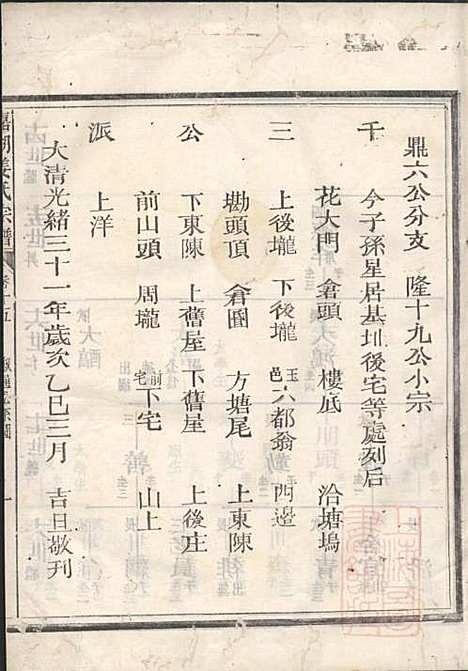 鼎六公分支　隆十九公小宗
今子孫星居基址後宅等處刻后
千　花大門　倉頭　樓底　冶塘塢
三　上後壠　下後壠　玉邑六都翁　西邉
墈頭頂　倉圕　方塘尾　上東陳
公　下東陳　上舊屋　下舊屋　上後庄
前山頭　周壠　前宅下宅　山上
派　上洋
大清光緒三十一年歲次乙巳三月　吉旦敬刊
姜氏宗譜　卷十五　一